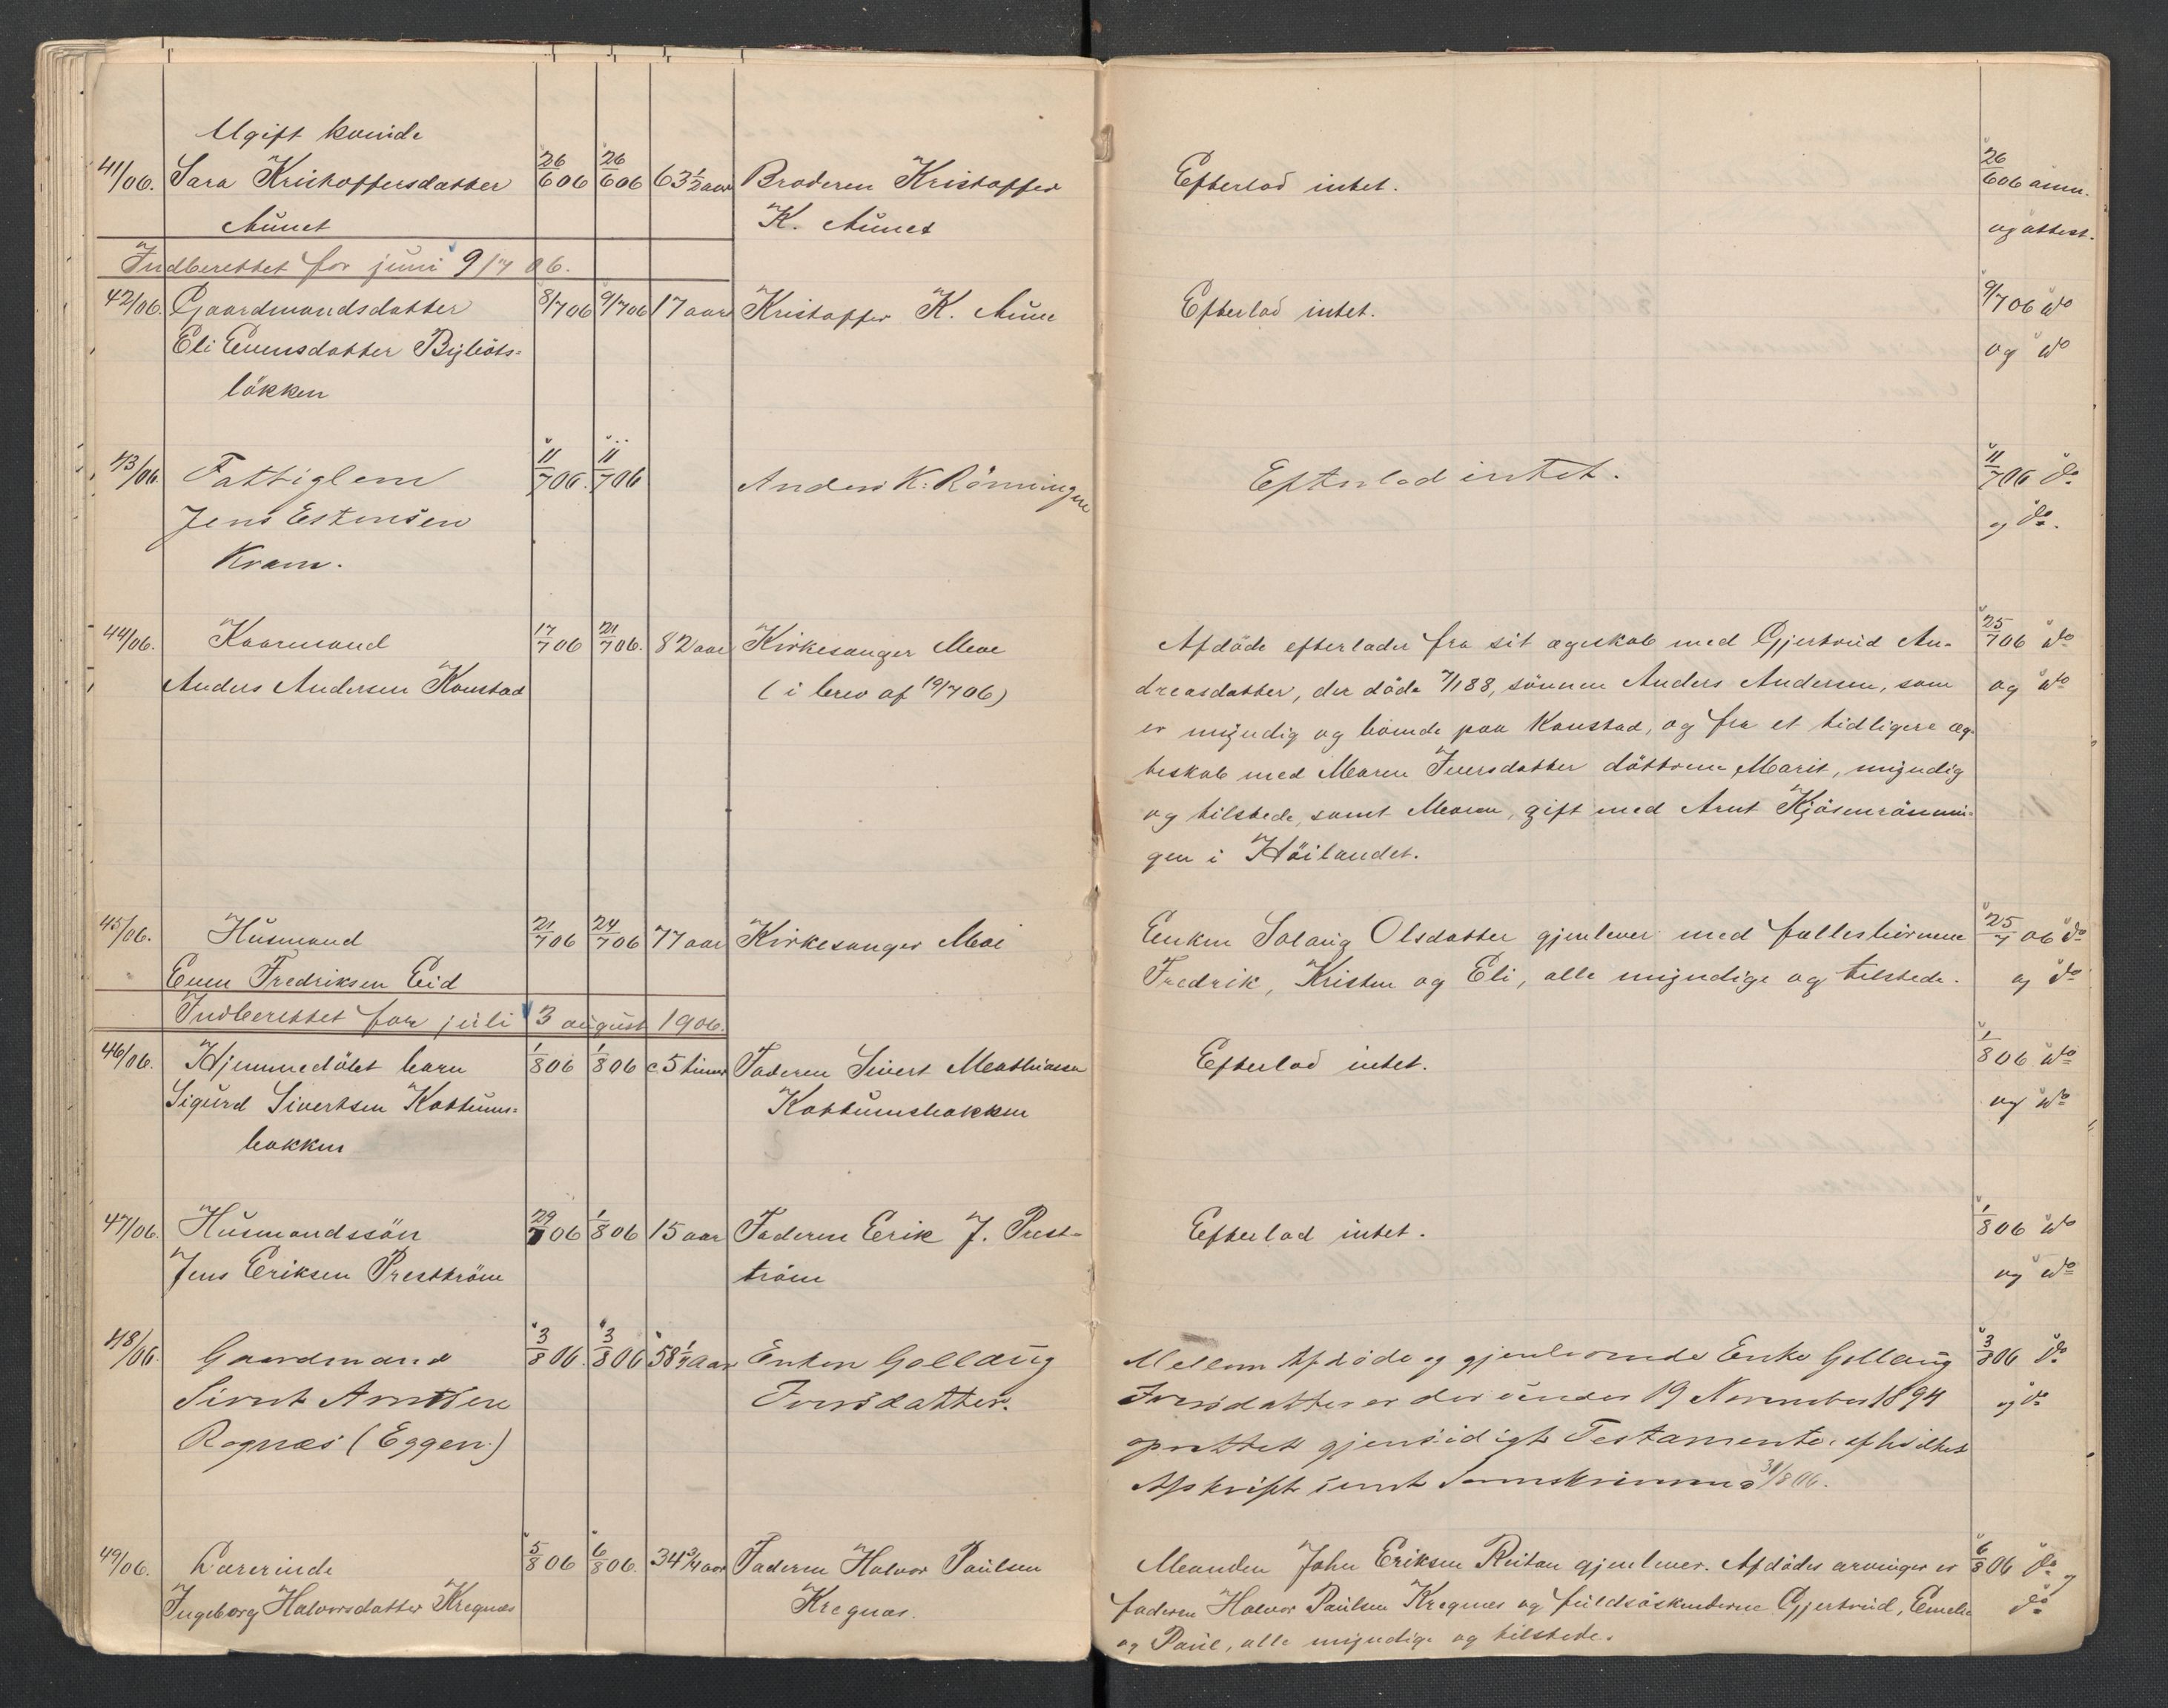 Ugift kvinde
41/06. Sara Kristoffersdatter 26/6 06 26/6 06 63 1/2 aar Broderen Kristoffer Efterlod intet. 26/6 06 anm.
Aunet K. Aunet og attest.
Indberettet for juni 9/7 06.
42/06. Gaardmandsdatter 8/7 06 9/7 06 17 aar Kristoffer K. Aune Efterlod intet. 9/7 06 do
Eli Evensdatter og do
løkken
43/06. Fattiglem 11/7 06. 11/7 06 Anders K. Rönningen Efterlod intet. 11/7 06 do.
Jens Estensen og do.
Kram.
44/06. Kaarmand 17/7 06 21/7 06. 82 aar Kirkesanger Moe Afdöde efterlader fra sit ægteskab med Gjertrud An- 25/7 06 do
Anders Andersen Konstad (i brev af 19/7 06) dreasdatter, der döde 7/1 88, sönnen Anders Andersen, som og do
er myndig og boende paa Konstad, og fra et tidligere æg-
teskab med Maren Iversdatter döttrene Marit, myndig
og tilstede, samt Maren, gift med Arnt Kjösenrönnin-
gen i Höilandet.
45/06. Husmand 21/7 06 24/7 06 77 aar Kirkesanger Moe Enken Solaug Olsdatter gjenlever med fællesbörnene 25/7 06 do
Even Fredriksen Eid Fredrik, Kristen og Eli, alle myndige og tilstede. og do
Indberettet for juli 3 august 1906.
46/06. Hjemmedöbt barn 1/8 06 1/8 06 c. 5 timer Faderen Sivert Mathiasen Efterlod intet. 1/8 06 do
Sigurd Sivertsen Kottums- Kottumsbakken og do
bakken
47/06. Husmandssön 29/7 06 1/8 06 15 aar Faderen Erik J. Prest- Efterlod intet. 1/8 06 do
Jens Eriksen Preström tröen og do
48/06. Gaardmand 3/8 06. 3/8 06 58 1/4 aar Enken Gollaug Mellem Afdöde og gjenlevende Enke Gollaug 3/8 06 do.
Sivert Arntsen Iversdatter. Iversdatter er der under 19 November 1894
Rognæs (Eggen) oprettet gjensidigt Testamente, af hvilket og do
Afskrift sendt Sorenskriveren 31/8 06.
49/06. Lærerinde 5/8 06 6/8 06. 34 3/4 aar Faderen Halvor Paulsen Manden John Eriksen Reitan gjenlever. Afdödes arvinger er 6/8 06 do og
Ingeborg Halvorsdatter Kregnæs Kregnæs. faderen Halvor Paulsen Kregnæs og fuldsöskenderne Gjertrud, Emelie do
og Paul, alle myndige og tilstede.